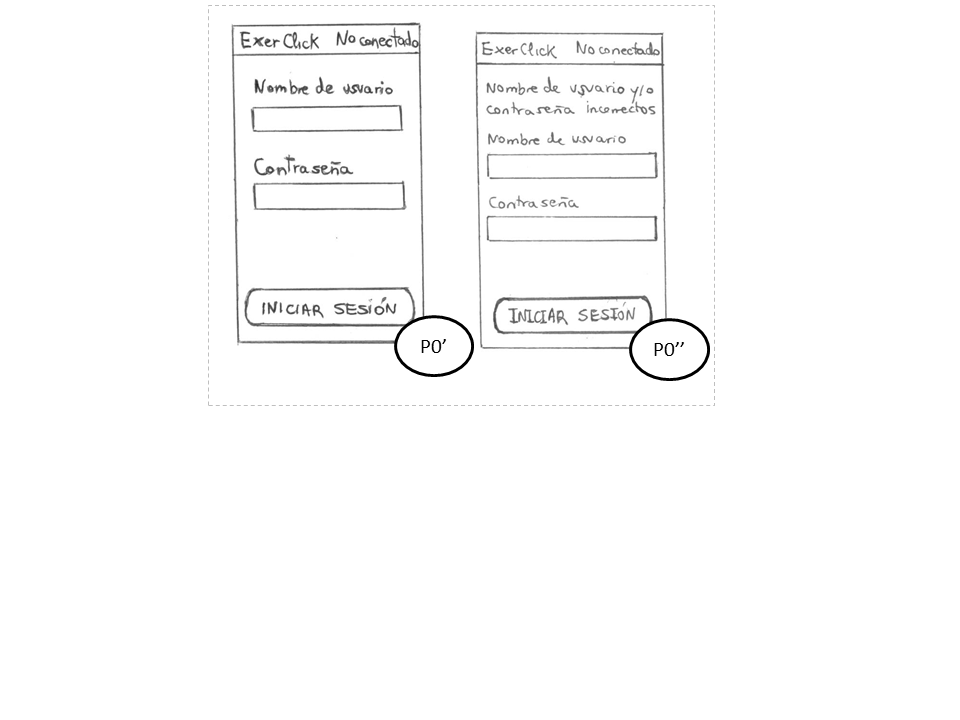 ExerClick No conectado
Nombre de usuario
Contraseña
INICIAR SESIÓN
P0’
ExerClick No conectado
Nombre de usuario y/o
contraseña incorrectos
Nombre de usuario
Contraseña
INICIAR SESIÓN
P0’’